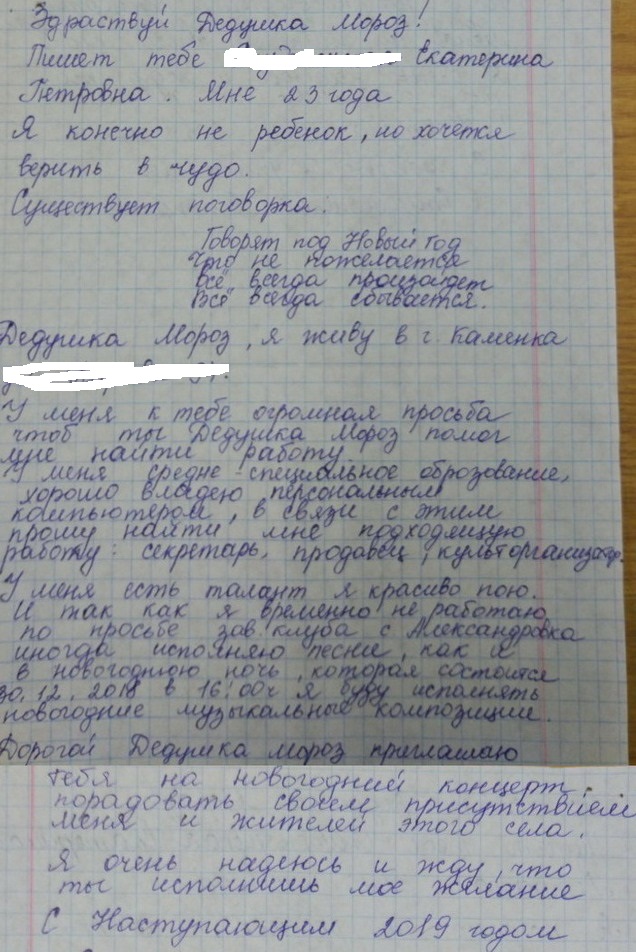 Здраствуй Дедушка Мороз!
Пишет тебе Екатерина
Петровна. Мне 23 года
Я конечно не ребенок, но хочется
верить в чудо.
Существует поговорка:
Говорят под Новый Год
Что не пожелается
Всё всегда произайдет
Всё всегда сбывается.
Дедушка Мороз, я живу в г. Каменка
У меня к тебе огромная просьба
чтоб ты Дедушка Мороз помог
мне найти работу.
У меня средне-специальное оброзование,
хорошо владею персональным
компьютером, в связи с этим
прошу найти мне подходящую
работу: секретарь, продавец, культорганизатор.
У меня есть талант я красиво пою.
И так как я временно не работаю,
по просьбе зав.клуба с Александровка
иногда исполняю песни, как и
в новогоднюю ночь, которая состоится
30.12.2018 в 16:00ч я буду исполнять
новогодние музыкальные композиции.
Дорогой Дедушка мороз приглашаю
тебя на новогодний концерт
порадовать своем присутствием
меня и жителей этого села.
Я очень надеюсь и жду, что
ты исполнишь мое желание
С Наступающим 2019 годом